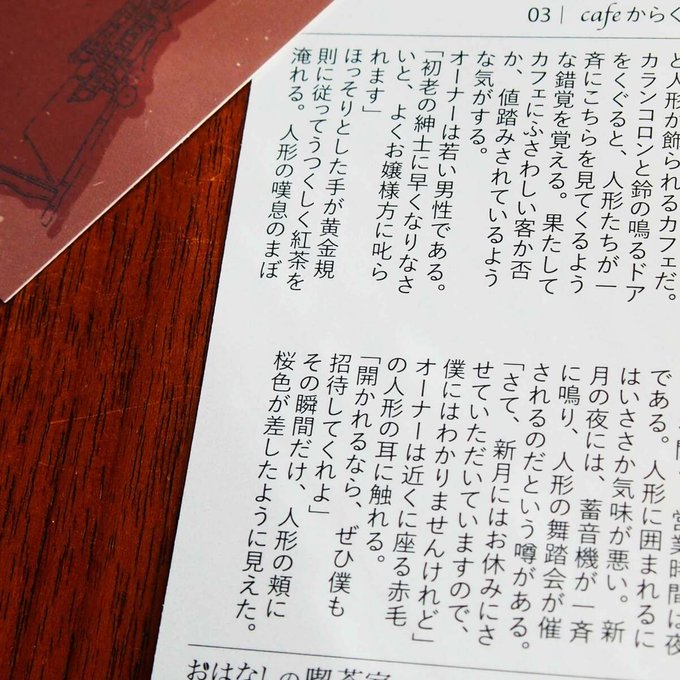 03 | cafeからく
と人形が飾られるカフェだ。
カランコロンと鈴の鳴るドア
をくぐると、人形たちが一
斉にこちらを見てくるよう
な錯覚を覚える。果たして
カフェにふさわしい客か否
か、値踏みされているよう
な気がする。
オーナーは若い男性である。
「初老の紳士に早くなりなさ
いと、よくお嬢様方に叱ら
れます」
ほっそりとした手が黄金規
則に従ってうつくしく紅茶を
淹れる。人形の嘆息のまぼ
営業時間は夜
である。人形に囲まれるに
はいささか気味が悪い。新
月の夜には、蓄音機が一斉
に鳴り、人形の舞踏会が催
されるのだという噂がある。
「さて、新月にはお休みにさ
せていただいていますので、
僕にはわかりませんけれど」
オーナーは近くに座る赤毛
の人形の耳に触れる。
「開かれるなら、ぜひ僕も
招待してくれよ」
その瞬間だけ、人形の頬に
桜色が差したように見えた。
おはなしの喫茶室